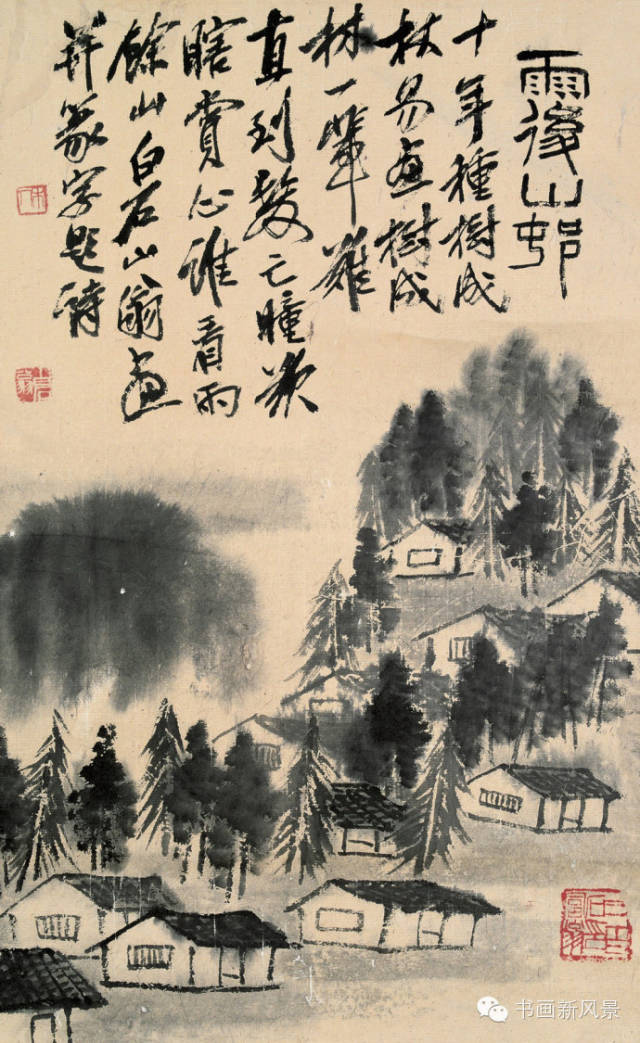 雨後山邨
十年種樹成
林易畫樹成
林一輩難
直到髮亡瞳欲
瞎賞心誰看雨
餘山白石山翁畫
并篆字題詩
书画新风景